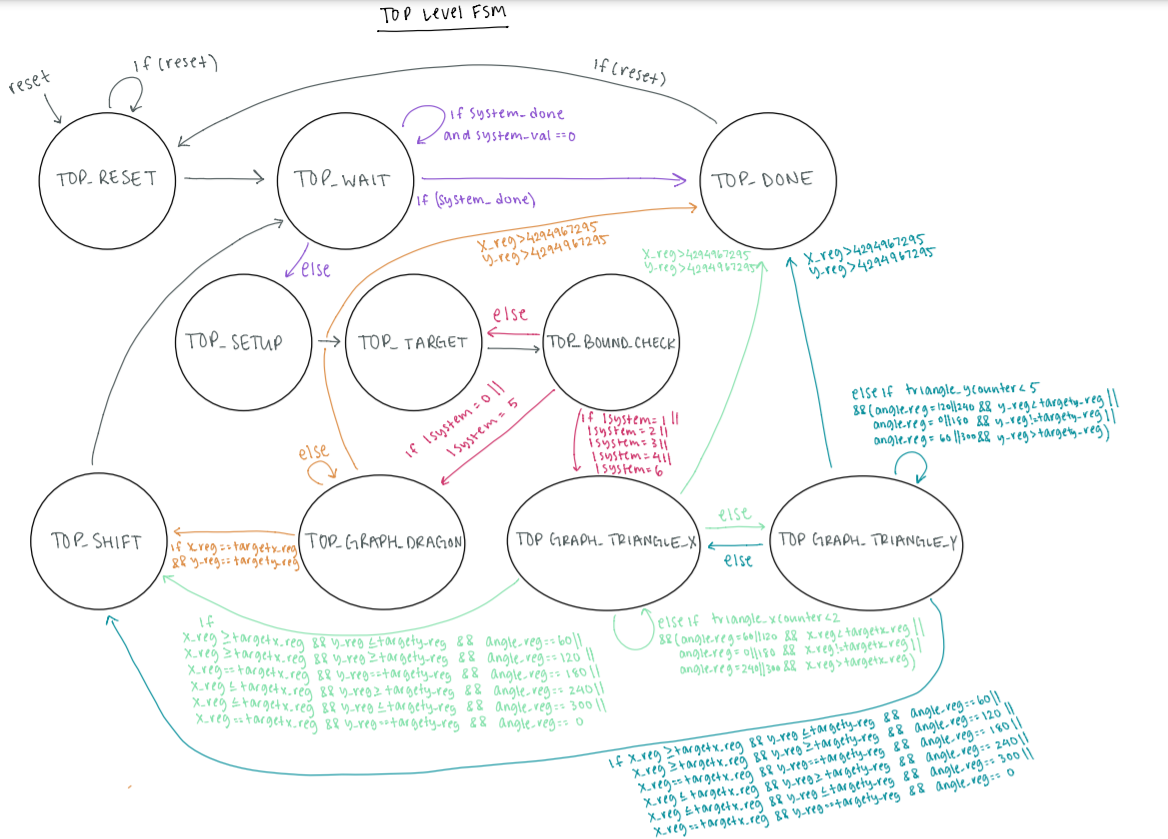 TOP Level FSM
reset
if (reset)
if (reset)
TOP_RESET
TOP_WAIT
if system_done
and system_val ==0
if (system_done)
TOP_DONE
else
x_reg>4294967295
y_reg>4294967295
x_reg>4294967295
y_reg>4294967295
x_reg>4294967295
y_reg>4294967295
TOP_SETUP
TOP_TARGET
else
TOP_BOUND_CHECK
if lsystem=0 ||
lsystem = 5
if lsystem=1 ||
lsystem=2||
lsystem=3||
lsystem=4||
lsystem=6
else if triangle_ycounter<5
&&(angle_reg=120||240 && y_reg<targety_reg ||
angle_reg= 0||180 && y_reg!=targety_reg ||
angle_reg= 60||300&& y_reg>targety_reg)
else
TOP_SHIFT
if x_reg==targetx_reg
&& y_reg==targety_reg
TOP_GRAPH_DRAGON
TOP GRAPH_TRIANGLE_X
else
else
TOP GRAPH_TRIANGLE_Y
else if triangle_xcounter<2
&&(angle_reg=60||120 && x_reg<targetx_reg ||
angle_reg= 0||180 && x_reg!=targetx_reg ||
angle_reg=240||300&& x_reg>targetx_reg)
if
x_reg ≥targetx_reg && y_reg ≤targety_reg && angle_reg==60||
x_reg ≥targetx_reg && y_reg ≥targety_reg && angle_reg==120 ||
x_reg==targetx_reg && y_reg==targety_reg && angle_reg== 180||
x_reg ≤ targetx_reg && y_reg≥ targety_reg && angle_reg== 240||
x_reg ≤targetx_reg && y_reg ≤targety_reg && angle_reg== 300||
x_reg==targetx_reg && y_reg==targety_reg && angle_reg== 0
if x_reg ≥targetx_reg && y_reg ≤targety_reg && angle_reg==60||
x_reg ≥targetx_reg && y_reg ≥targety_reg && angle_reg==120 ||
x_reg==targetx_reg && y_reg==targety_reg && angle_reg== 180||
x_reg ≤ targetx_reg && y_reg≥ targety_reg && angle_reg== 240||
x_reg ≤targetx_reg && y_reg ≤targety_reg && angle_reg== 300||
x_reg==targetx_reg && y_reg==targety_reg && angle_reg== 0